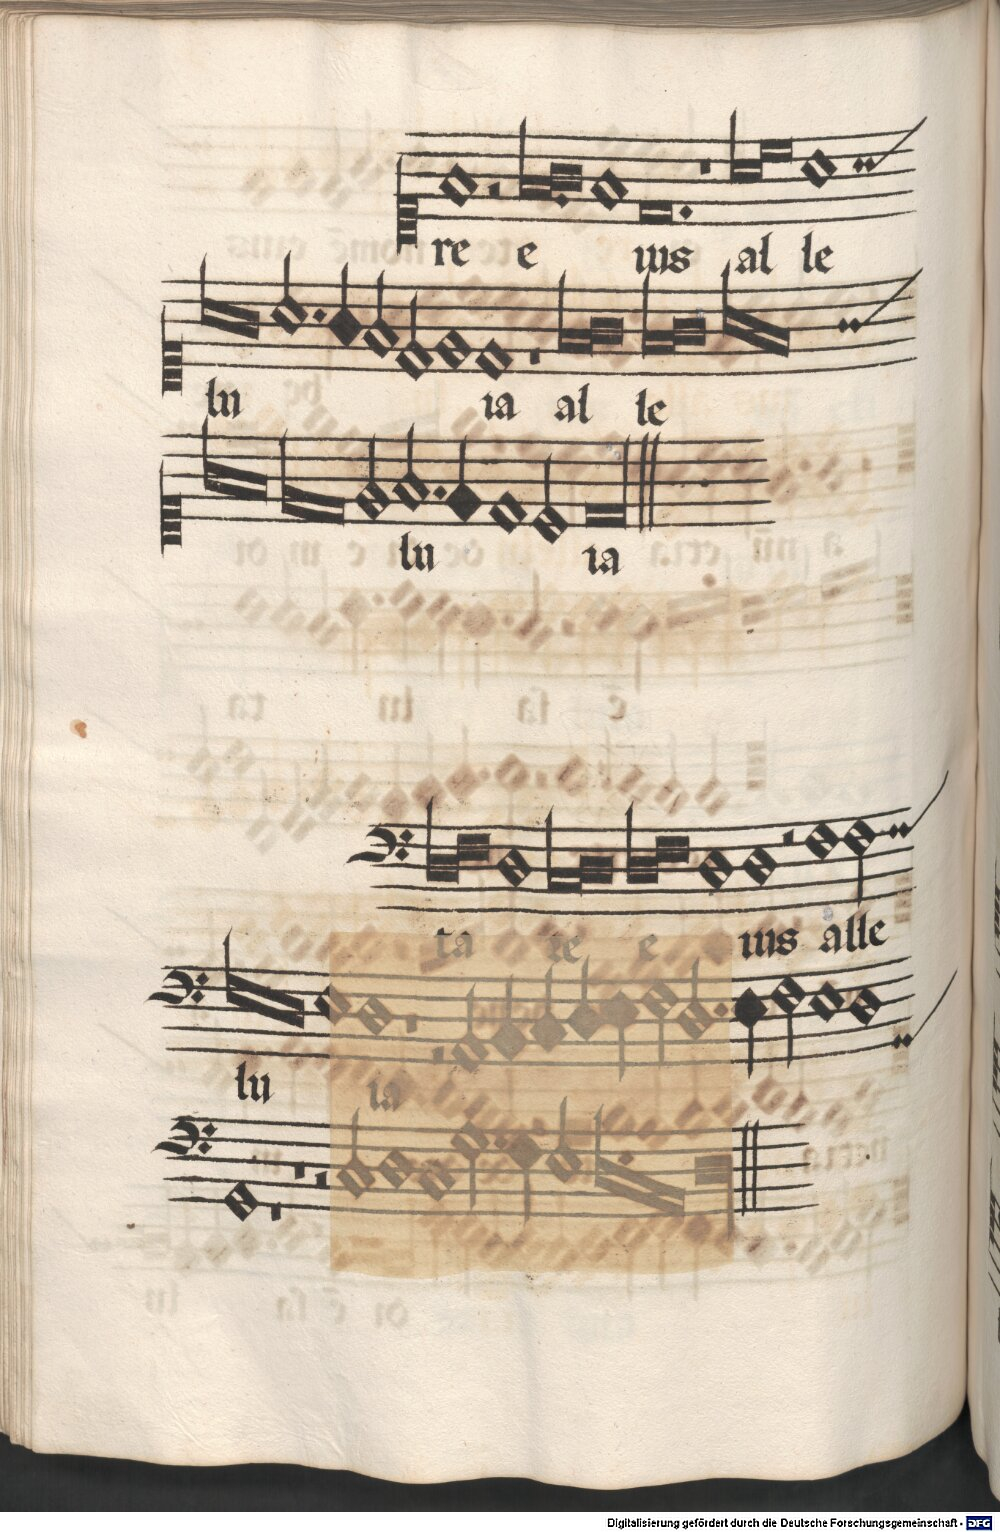 re e ius al le
lu ia al le
lu ia
ta re e ius alle
lu ia
Digitalisierung gefördert durch die Deutsche Forschungsgemeinschaft - DFG